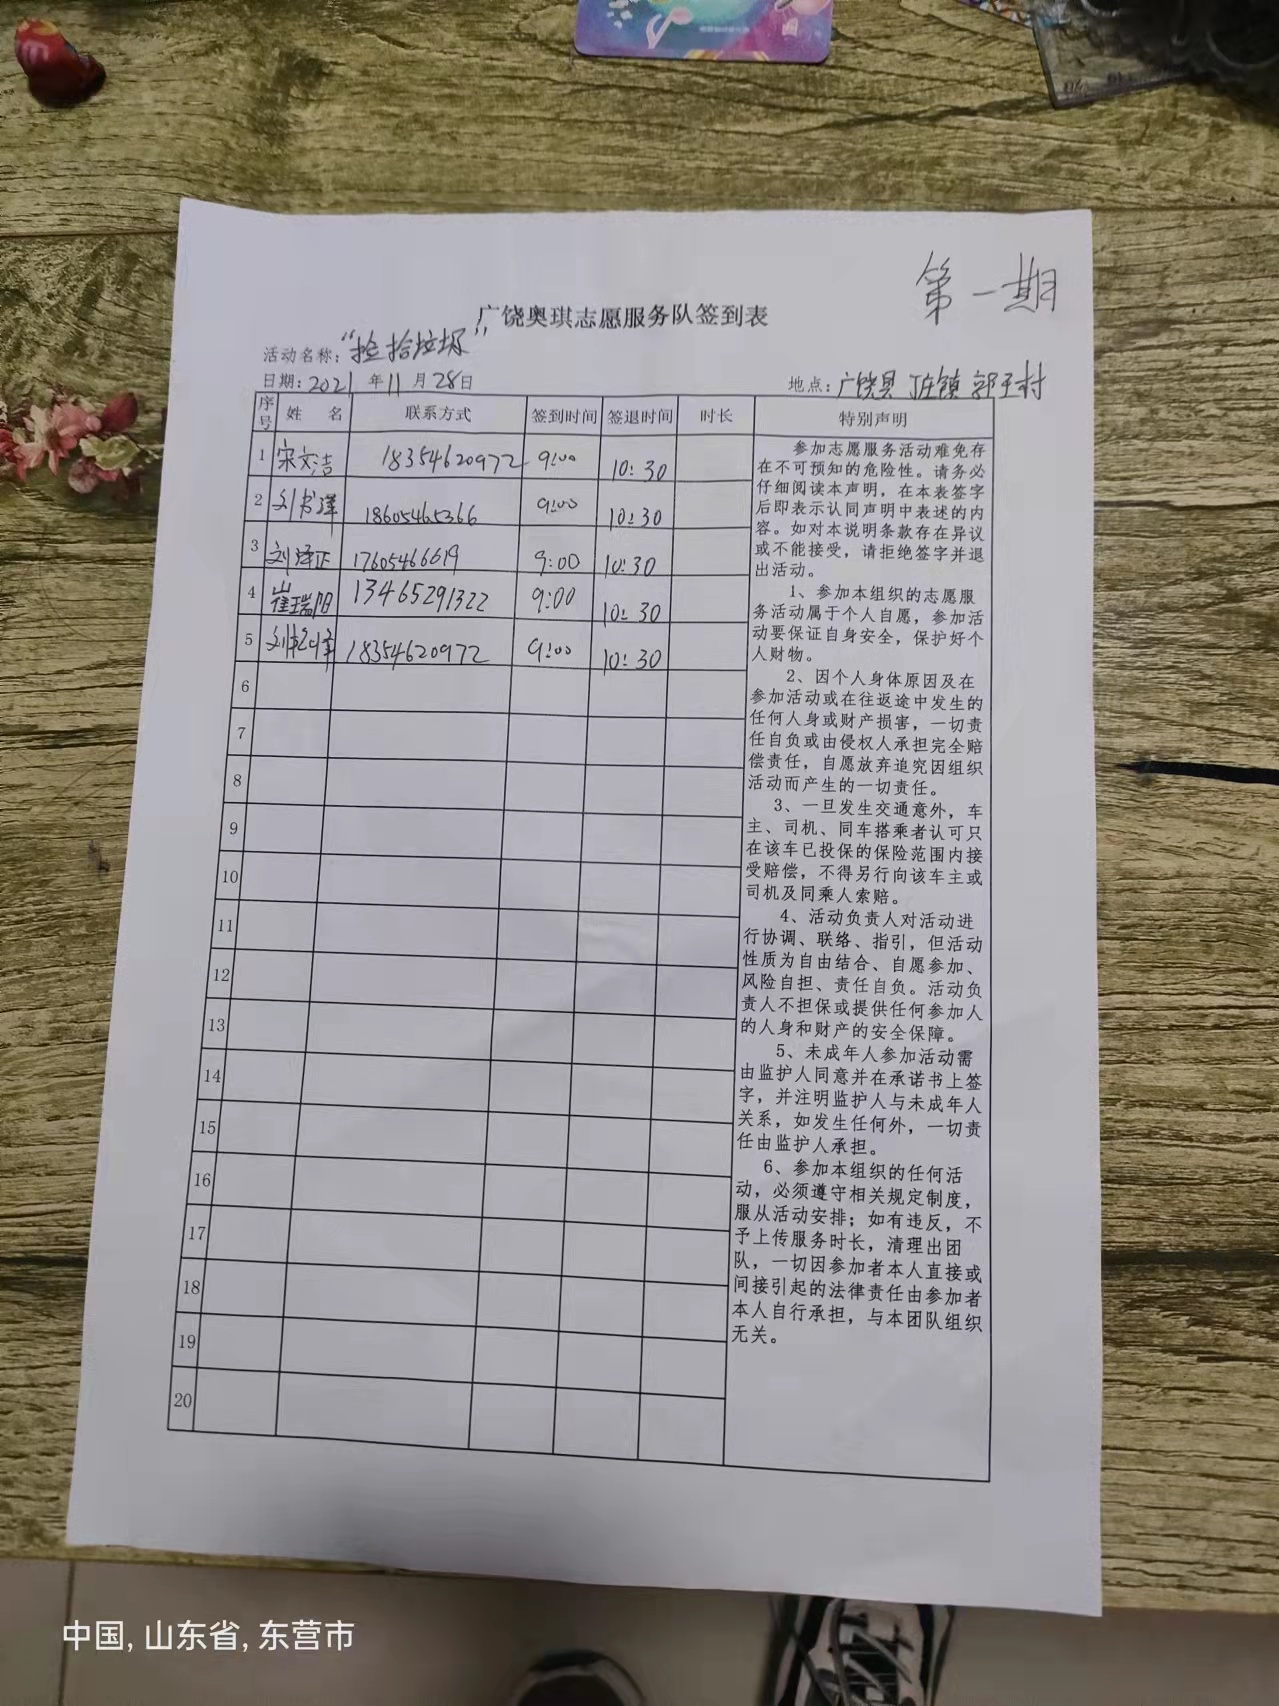 第一期
广饶奥琪志愿服务队签到表
活动名称：“捡拾垃圾”
日期：2021年11月28日 地点：广饶县丁庄镇郭王村
序号 姓 名 联系方式 签到时间 签退时间 时长 特别声明
1 宋文洁 18354620972 9:00 10:30
2 刘书泽 18605465366 9:00 10:30
3 刘泽正 17605466619 9:00 10:30
4 崔瑞阳 13465291322 9:00 10:30
5 18354620972 9:00 10:30
6
7
8
9
10
11
12
13
14
15
16
17
18
19
20
参加志愿服务活动难免存
在不可预知的危险性。请务必
仔细阅读本声明，在本表签字
后即表示认同声明中表述的内
容。如对本说明条款存在异议
或不能接受，请拒绝签字并退
出活动。
1、参加本组织的志愿服
务活动属于个人自愿，参加活
动要保证自身安全，保护好个
人财物。
2、因个人身体原因及在
参加活动或在往返途中发生的
任何人身或财产损害，一切责
任自负或由侵权人承担完全赔
偿责任，自愿放弃追究因组织
活动而产生的一切责任。
3、一旦发生交通意外，车
主、司机、同车搭乘者认可只
在该车已投保的保险范围内接
受赔偿，不得另行向该车主或
司机及同乘人索赔。
4、活动负责人对活动进
行协调、联络、指引，但活动
性质为自由结合、自愿参加、
风险自担、责任自负。活动负
责人不担保或提供任何参加人
的人身和财产的安全保障。
5、未成年人参加活动需
由监护人同意并在承诺书上签
字，并注明监护人与未成年人
关系，如发生任何外，一切责
任由监护人承担。
6、参加本组织的任何活
动，必须遵守相关规定制度，
服从活动安排；如有违反，不
予上传服务时长，清理出团
队，一切因参加者本人直接或
间接引起的法律责任由参加者
本人自行承担，与本团队组织
无关。
中国, 山东省, 东营市